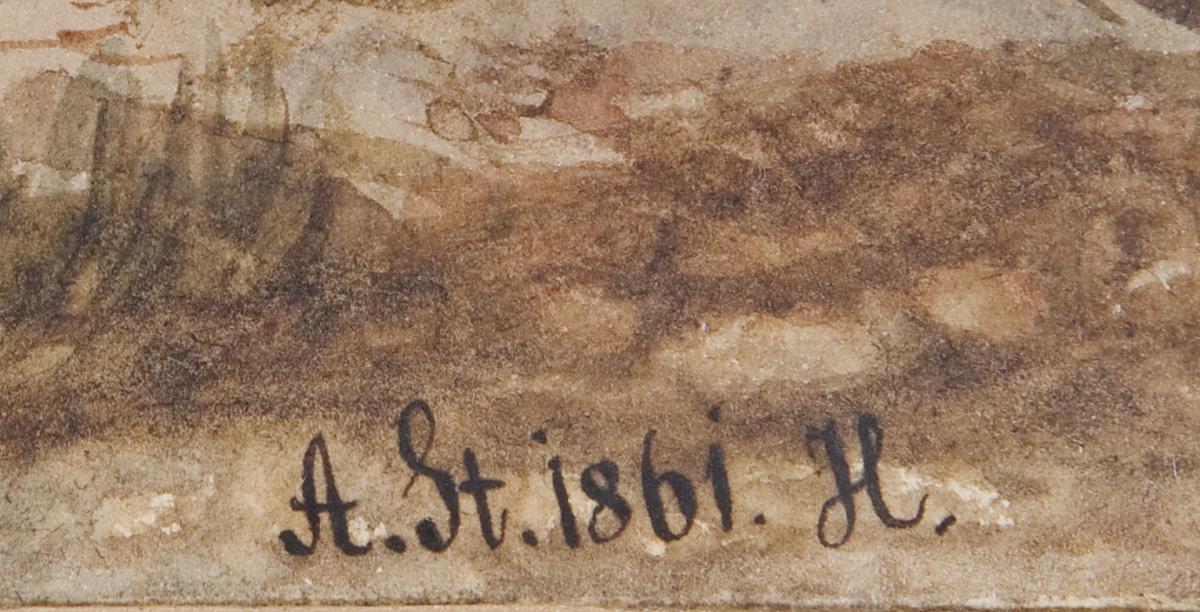 A. St. 1861. H.